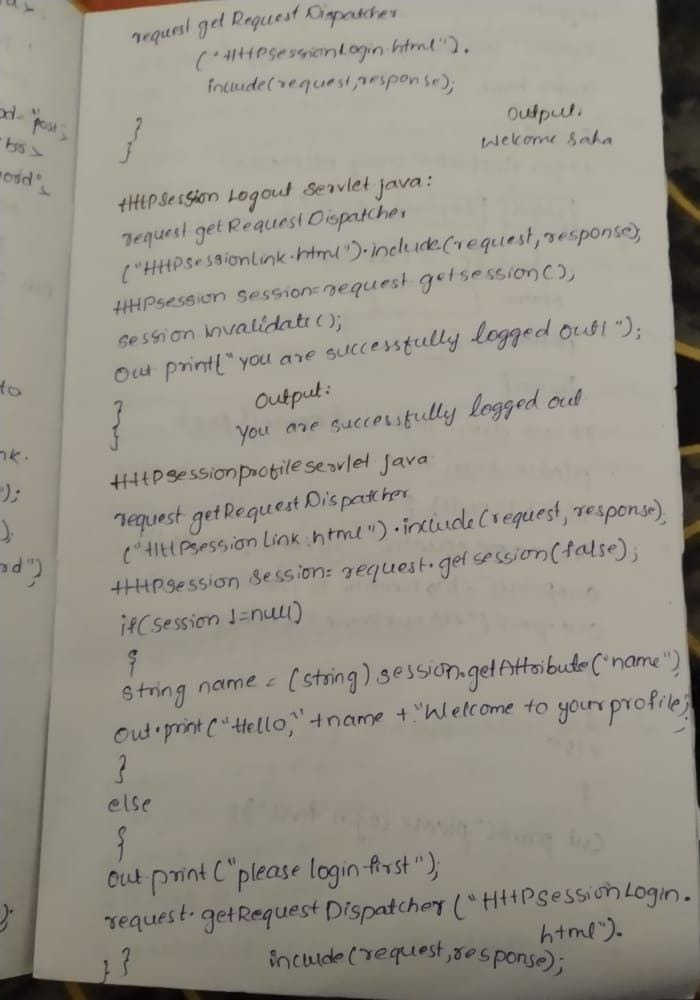 request get Request Dispatcher
("HttpsessionLogin.html").
include(request,response);
}
}
Output:
Welcome Saha
HttpSession Logout Servlet java:
request getRequestDispatcher
("HttpsessionLink.html").include(request,response);
Httpsession session=request getsession();
session invalidate();
Out print("you are successfully logged out!");
}
}
Output:
You are successfully logged out
Httpsessionprofileservlet java
request getRequestDispatcher
("Httpsession Link.html").include(request, response);
Httpsession session= request.getsession(false);
if(session !=null)
{
String name = (string) session.getAttribute("name")
out.print("Hello," +name + "Welcome to your profile;
}
else
{
out print("please login first");
request.getRequestDispatcher("HttpsessionLogin.
html").
include(request,response);
} }
post
to
nk.
);
).
rd")
);